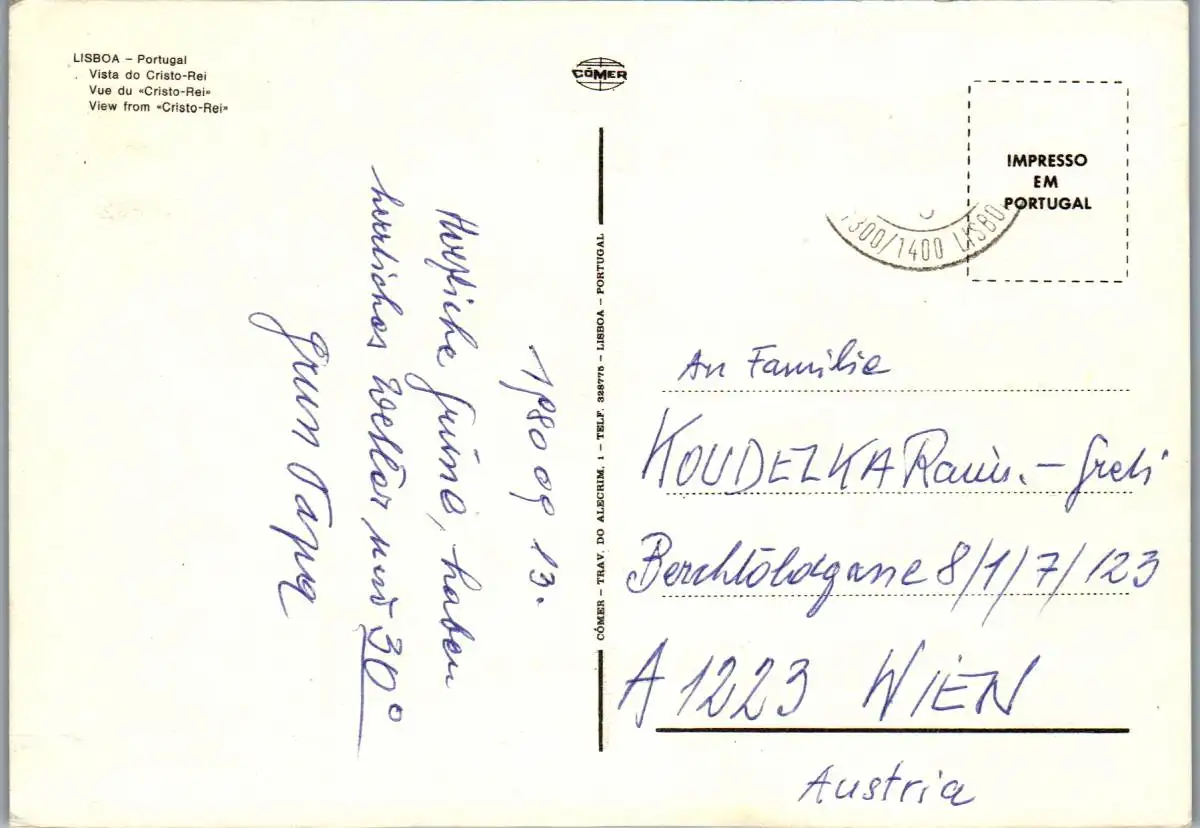 LISBOA – Portugal
Vista do Cristo-Rei
Vue du «Cristo-Rei»
View from «Cristo-Rei»
CÓMER
IMPRESSO
EM
PORTUGAL
1300/1400 LISBO
CÓMER – TRAV. DO ALECRIM, 1 – TELF. 328775 – LISBOA – PORTUGAL
1980 09 13.
Herzliche Grüße, haben
herrliches Wetter und 30°
Papa
An Familie
KOUDELKA Raim. – Greti
Berchtoldgasse 8/1/7/123
A 1223 WIEN
Austria